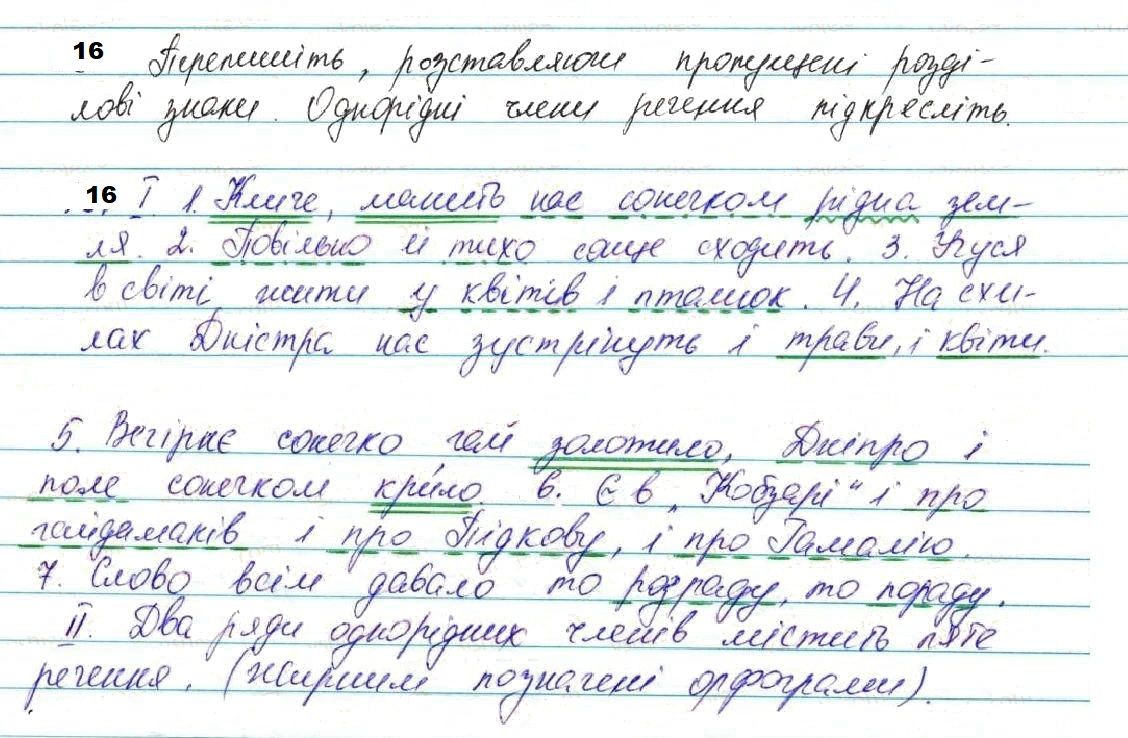 16 Перепишіть, розставляючи пропущені розді-
лові знаки. Однорідні члени речення підкресліть.
16 І. 1. Кличе, манить нас сонечком рідна зем-
ля. 2. Повільно й тихо сонце сходить. 3. Учуся
в світі жити у квітів і пташок. 4. На схи-
лах Дністра нас зустрінуть і трави, і квіти.
5. Вечірнє сонечко гай золотило, Дніпро і
поле сонечком крило. 6. Є в „Кобзарі" і про
гайдамаків і про Підкову, і про Гамалію.
7. Слово всім давало то розраду, то пораду.
ІІ. Два ряди однорідних членів містить п'яте
речення. (Жирним позначені орфограми).